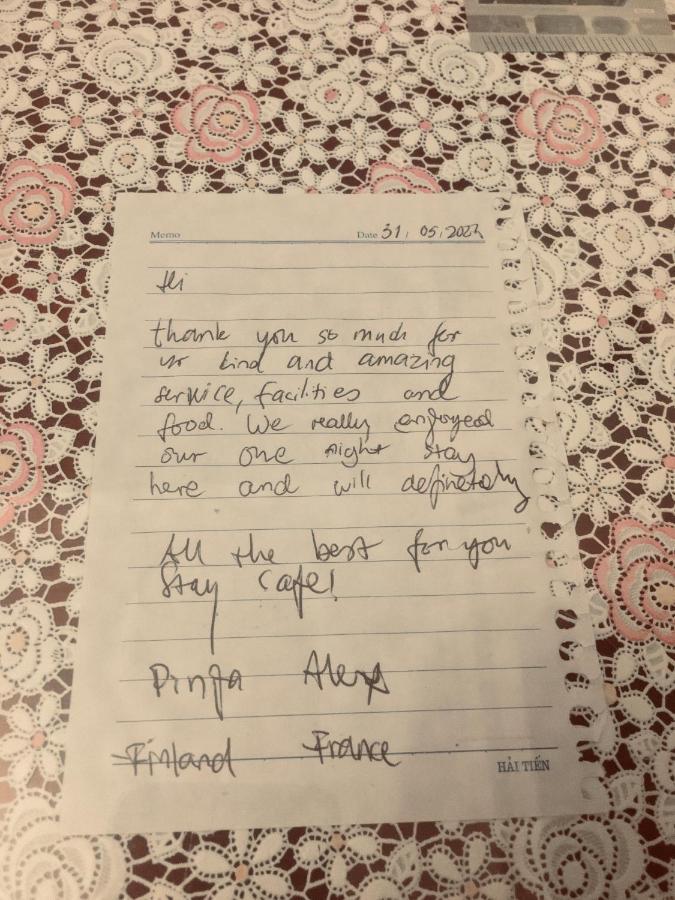 Memo Date 31/ 05/2022
Hi
thank you so much for
ur kind and amazing
service, facilities and
food. We really enjoyed
our one night stay
here and will definetely
All the best for you
Stay Cafe!
Alexs
Finland France
HẢI TIẾN